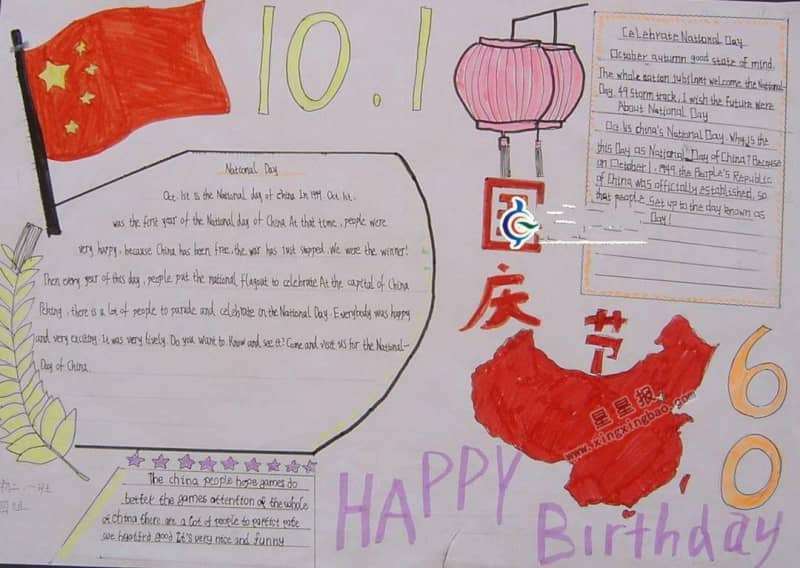 10.1
National Day
Oct. 1st is the National day of china. In 1949. Oct. 1st.
was the first year of the National day of China. At that time, people were
very happy, because China has been free, the war has just stopped. We were the winner!
Then every year of this day, people put the national flag out to celebrate. At the capital of China
Peking, there is a lot of people to parade and celebrate in the National Day. Everybody was happy
and very exciting. It was very lively. Do you want to. Know and see it? Come and visit us for the National-
Day of China.
The china people hope games do
better the games attention of the whole
of china there are a lot of people to
we good It's very nice and funny
初二 一班
国庆节
CeLebrate National Day
October autumn good state of mind.
The whole nation jubilant welcome the National-
Day. 49 storm track, I wish the future were
About National Day
Oct. 1is china's National Day. Why is the
this Day as National Day of China? Because
on October 1, 1949 the People's Republic
of China was officially established, so
that people set up to the day known as
Day!
60
星星报
www.xingxingbao.com
HAPPY
Birthday